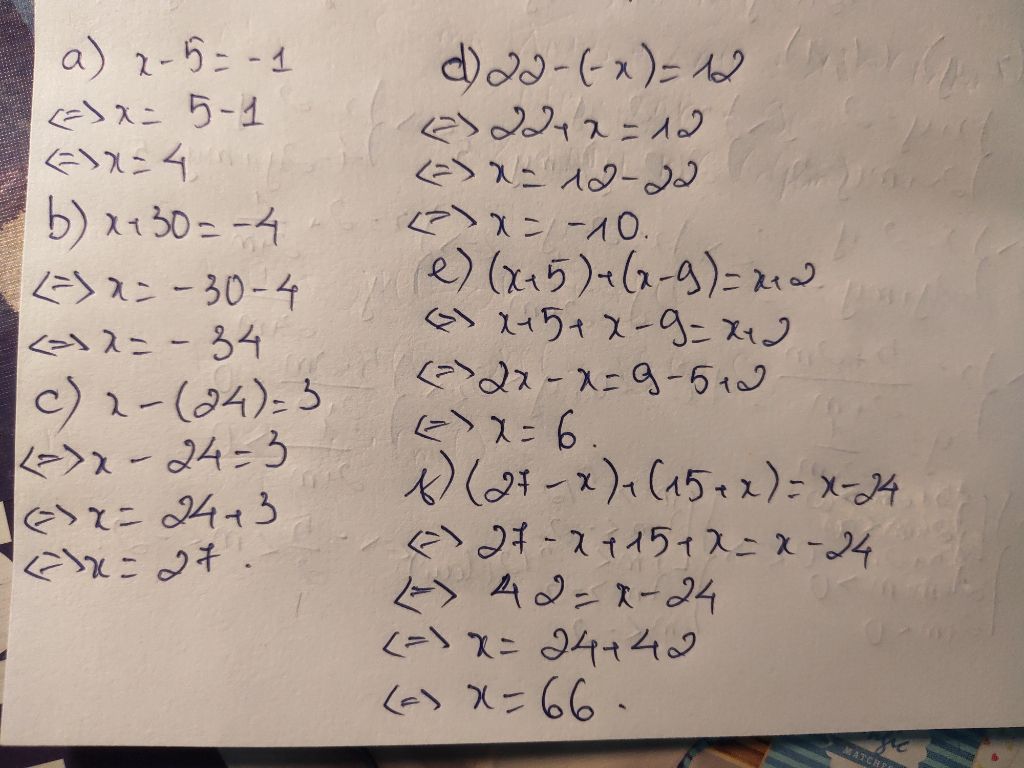 a) x - 5 = - 1
<=> x = 5 - 1
<=> x = 4
b) x + 30 = - 4
<=> x = - 30 - 4
<=> x = - 34
c) x - (24) = 3
<=> x - 24 = 3
<=> x = 24 + 3
<=> x = 27.
d) 22 - (- x) = 12
<=> 22 + x = 12
<=> x = 12 - 22
<=> x = - 10.
e) (x + 5) + (x - 9) = x + 2
<=> x + 5 + x - 9 = x + 2
<=> 2x - x = 9 - 5 + 2
<=> x = 6.
f) (27 - x) + (15 + x) = x - 24
<=> 27 - x + 15 + x = x - 24
<=> 42 = x - 24
<=> x = 24 + 42
<=> x = 66.